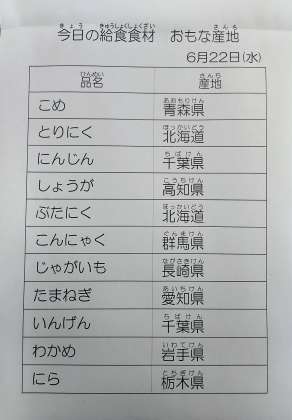 今日の給食食材　おもな産地
6月22日(水)
品名　産地
こめ　青森県
とりにく　北海道
にんじん　千葉県
しょうが　高知県
ぶたにく　北海道
こんにゃく　群馬県
じゃがいも　長崎県
たまねぎ　愛知県
いんげん　千葉県
わかめ　岩手県
にら　栃木県